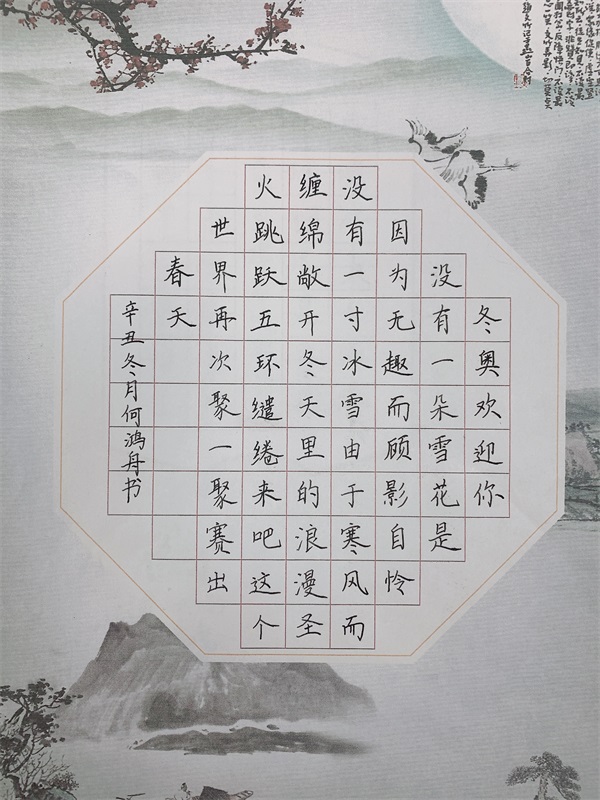 冬奥欢迎你
没有一朵雪花是
因为无趣而顾影自怜
没有一寸冰雪由于寒风而
缠绵敞开冬天里的浪漫圣
火跳跃五环缱绻来吧这个
世界再次聚一聚赛出
春天
辛丑冬月何鸿舟书